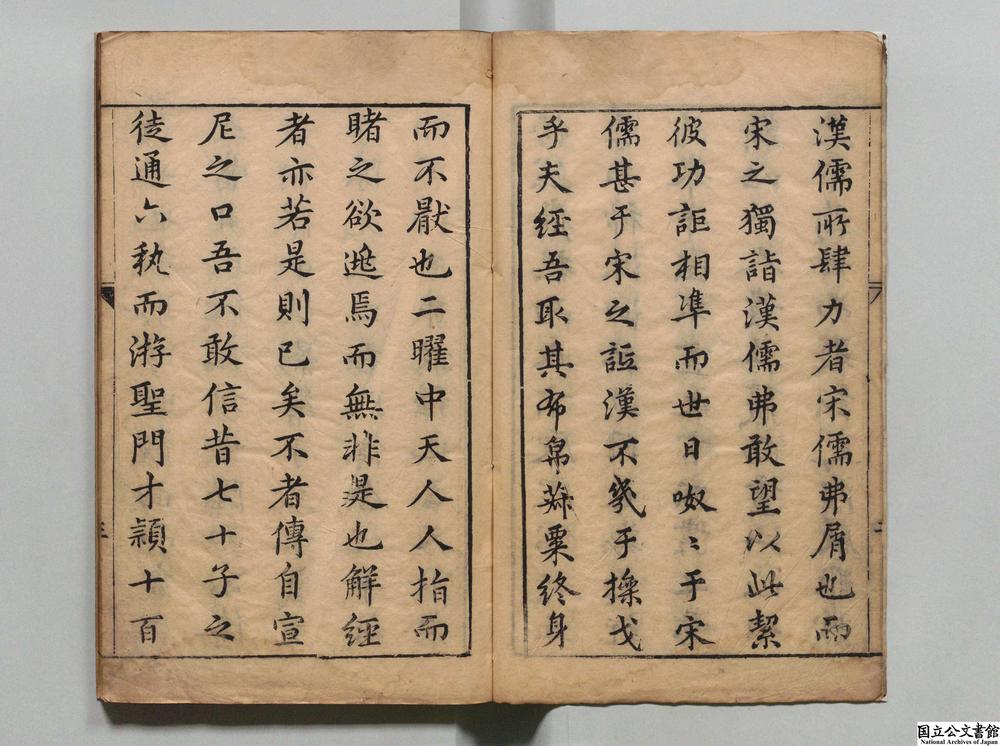 漢儒所肆力者宋儒弗屑也而
宋之獨詣漢儒弗敢望以此絜
彼功詎相準而世日呶〻于宋
儒甚于宋之詬漢不幾于操戈
乎夫經吾取其布帛菽粟終身
而不厭也二曜中天人人指而
睹之欲遁焉而無非是也解經
者亦若是則已矣不者傳自宣
尼之口吾不敢信昔七十子之
徒通六執而游聖門才穎十百
二
三
国立公文書館
National Archives of Japan